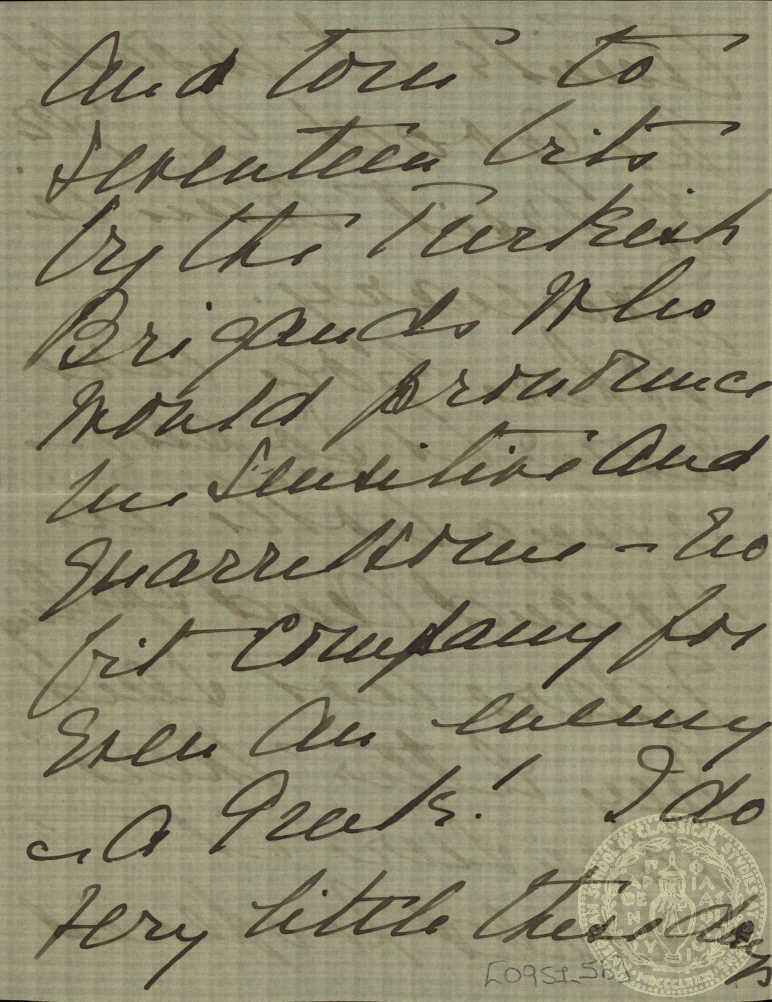 and torn to
seventeen bits
by the Turkish
Brigands who
would pronounce
me sensitive and
quarrelsome – no
fit company for
even an enemy
– a Greek! I do
very little these days
[0951_5b]